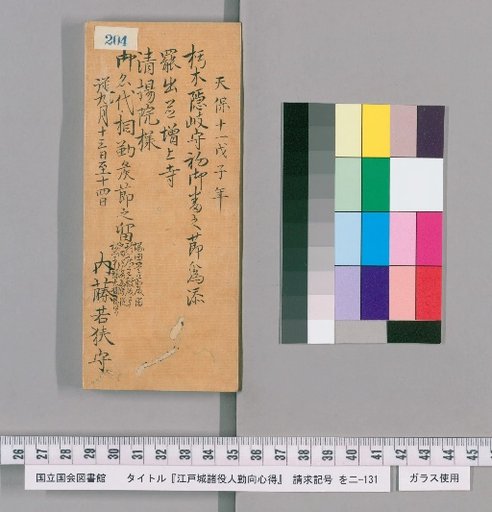 204
天保十一戊子年
朽木隠岐守初御番之節為添
罷出並増上寺
清揚院様
御名代相勤候節之留
従九月十三日至十四日
内藤若狭守
26 27 28 29 30 31 32 33 34 35 36 37 38 39 40 41 42 43 44 45
国立国会図書館 タイトル『江戸城諸役人勤向心得』 請求記号 を二-131
ガラス使用